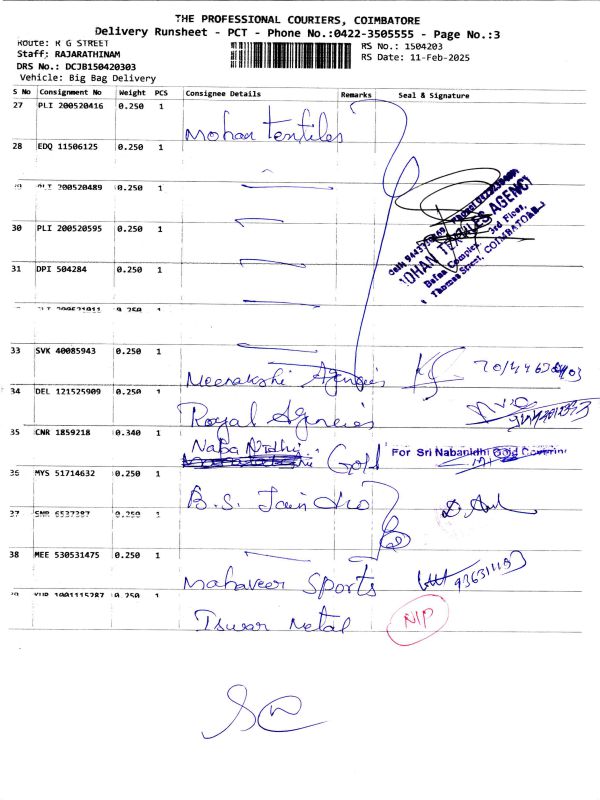 THE PROFESSIONAL COURIERS, COIMBATORE
Delivery Runsheet - PCT - Phone No.:0422-3505555 - Page No.:3
Route: R G STREET
Staff; RAJARATHINAM
RS No.: 1504203
DRS No.: DCJB150420303
RS Date: 11-Feb-2025
Vehicle: Big Bag Delivery
S No Consignment No Weight PCS Consignee Details Remarks Seal & Signature
27 PLI 200520416 0.250 1
Mohan Textiles
28 EDQ 11506125 0.250 1
PLI 200520489 0.250 1
30 PLI 200520595 0.250 1
31 DPI 504284 0.250 1
MOHAN TEXTILES AGENCY
Bafna Complex, 3rd Floor,
Thomas Street, COIMBATORE
0.250 1
33 SVK 40085943 0.250 1
Meenakshi Agencies
34 DEL 121525909 0.250 1
Royal Agencies
35 CNR 1859218 0.340 1
Naba Nidhi Gold
For Sri Nabanidhi Gold Covering
36 MYS 51714632 0.250 1
B.S. Jain
37 0.250 1
38 MEE 530531475 0.250 1
Mahaveer Sports
1001115287 0.250 1
Iswar Metal
N/P